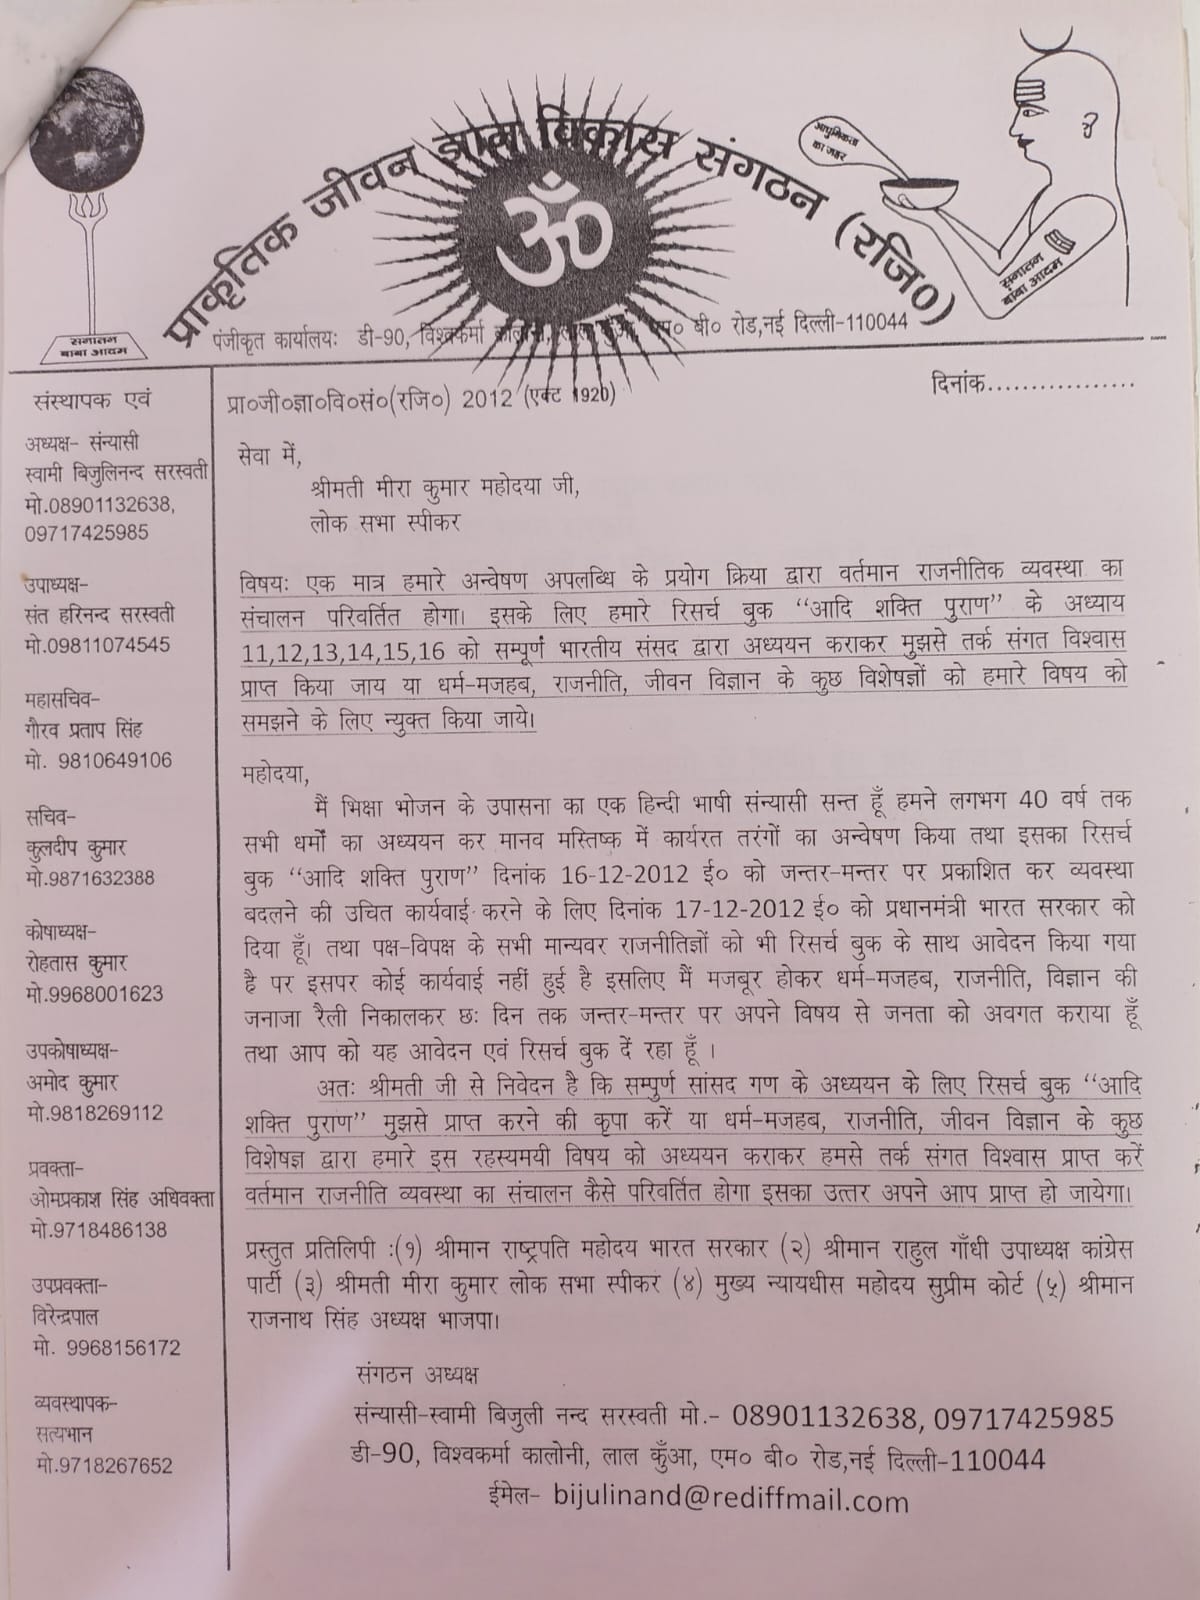 प्राकृतिक जीवन ज्ञान विकास संगठन (रजि०)
आधुनिकता
का जहर
सनातन
बाबा आदम
सनातन
बाबा आदम
ॐ
पंजीकृत कार्यालयः डी-90, विश्वकर्मा कालोनी, लाल कुँआ, एम० बी० रोड,नई दिल्ली-110044
प्रा०जी०ज्ञा०वि०सं०(रजि०) 2012 (एक्ट 1920)
दिनांक.................
संस्थापक एवं
अध्यक्ष- संन्यासी
स्वामी बिजुलिनन्द सरस्वती
मो.08901132638,
09717425985
उपाध्यक्ष-
संत हरिनन्द सरस्वती
मो.09811074545
महासचिव-
गौरव प्रताप सिंह
मो. 9810649106
सचिव-
कुलदीप कुमार
मो.9871632388
कोषाध्यक्ष-
रोहतास कुमार
मो.9968001623
उपकोषाध्यक्ष-
अमोद कुमार
मो.9818269112
प्रवक्ता-
ओमप्रकाश सिंह अधिवक्ता
मो.9718486138
उपप्रवक्ता-
विरेन्द्रपाल
मो. 9968156172
व्यवस्थापक-
सत्यभान
मो.9718267652
सेवा में,
श्रीमती मीरा कुमार महोदया जी,
लोक सभा स्पीकर
विषयः एक मात्र हमारे अन्वेषण अपलब्धि के प्रयोग क्रिया द्वारा वर्तमान राजनीतिक व्यवस्था का
संचालन परिवर्तित होगा। इसके लिए हमारे रिसर्च बुक “आदि शक्ति पुराण” के अध्याय
11,12,13,14,15,16 को सम्पूर्ण भारतीय संसद द्वारा अध्ययन कराकर मुझसे तर्क संगत विश्वास
प्राप्त किया जाय या धर्म-मजहब, राजनीति, जीवन विज्ञान के कुछ विशेषज्ञों को हमारे विषय को
समझने के लिए न्युक्त किया जाये।
महोदया,
मैं भिक्षा भोजन के उपासना का एक हिन्दी भाषी संन्यासी सन्त हूँ हमने लगभग 40 वर्ष तक
सभी धर्मों का अध्ययन कर मानव मस्तिष्क में कार्यरत तरंगों का अन्वेषण किया तथा इसका रिसर्च
बुक “आदि शक्ति पुराण” दिनांक 16-12-2012 ई० को जन्तर-मन्तर पर प्रकाशित कर व्यवस्था
बदलने की उचित कार्यवाई करने के लिए दिनांक 17-12-2012 ई० को प्रधानमंत्री भारत सरकार को
दिया हूँ। तथा पक्ष-विपक्ष के सभी मान्यवर राजनीतिज्ञों को भी रिसर्च बुक के साथ आवेदन किया गया
है पर इसपर कोई कार्यवाई नहीं हुई है इसलिए मैं मजबूर होकर धर्म-मजहब, राजनीति, विज्ञान की
जनाजा रैली निकालकर छः दिन तक जन्तर-मन्तर पर अपने विषय से जनता को अवगत कराया हूँ
तथा आप को यह आवेदन एवं रिसर्च बुक दें रहा हूँ ।
अतः श्रीमती जी से निवेदन है कि सम्पुर्ण सांसद गण के अध्ययन के लिए रिसर्च बुक “आदि
शक्ति पुराण” मुझसे प्राप्त करने की कृपा करें या धर्म-मजहब, राजनीति, जीवन विज्ञान के कुछ
विशेषज्ञ द्वारा हमारे इस रहस्यमयी विषय को अध्ययन कराकर हमसे तर्क संगत विश्वास प्राप्त करें
वर्तमान राजनीति व्यवस्था का संचालन कैसे परिवर्तित होगा इसका उत्तर अपने आप प्राप्त हो जायेगा।
प्रस्तुत प्रतिलिपी :(१) श्रीमान राष्ट्रपति महोदय भारत सरकार (२) श्रीमान राहुल गाँधी उपाध्यक्ष कांग्रेस
पार्टी (३) श्रीमती मीरा कुमार लोक सभा स्पीकर (४) मुख्य न्यायधीस महोदय सुप्रीम कोर्ट (५) श्रीमान
राजनाथ सिंह अध्यक्ष भाजपा।
संगठन अध्यक्ष
संन्यासी-स्वामी बिजुली नन्द सरस्वती मो.- 08901132638, 09717425985
डी-90, विश्वकर्मा कालोनी, लाल कुँआ, एम० बी० रोड,नई दिल्ली-110044
ईमेल- bijulinand@rediffmail.com